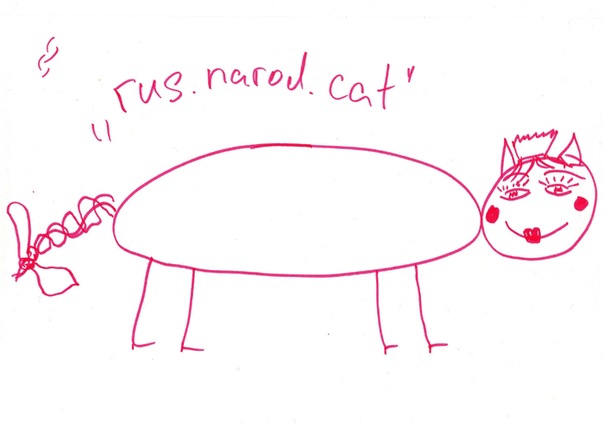 „rus.narod.cat"